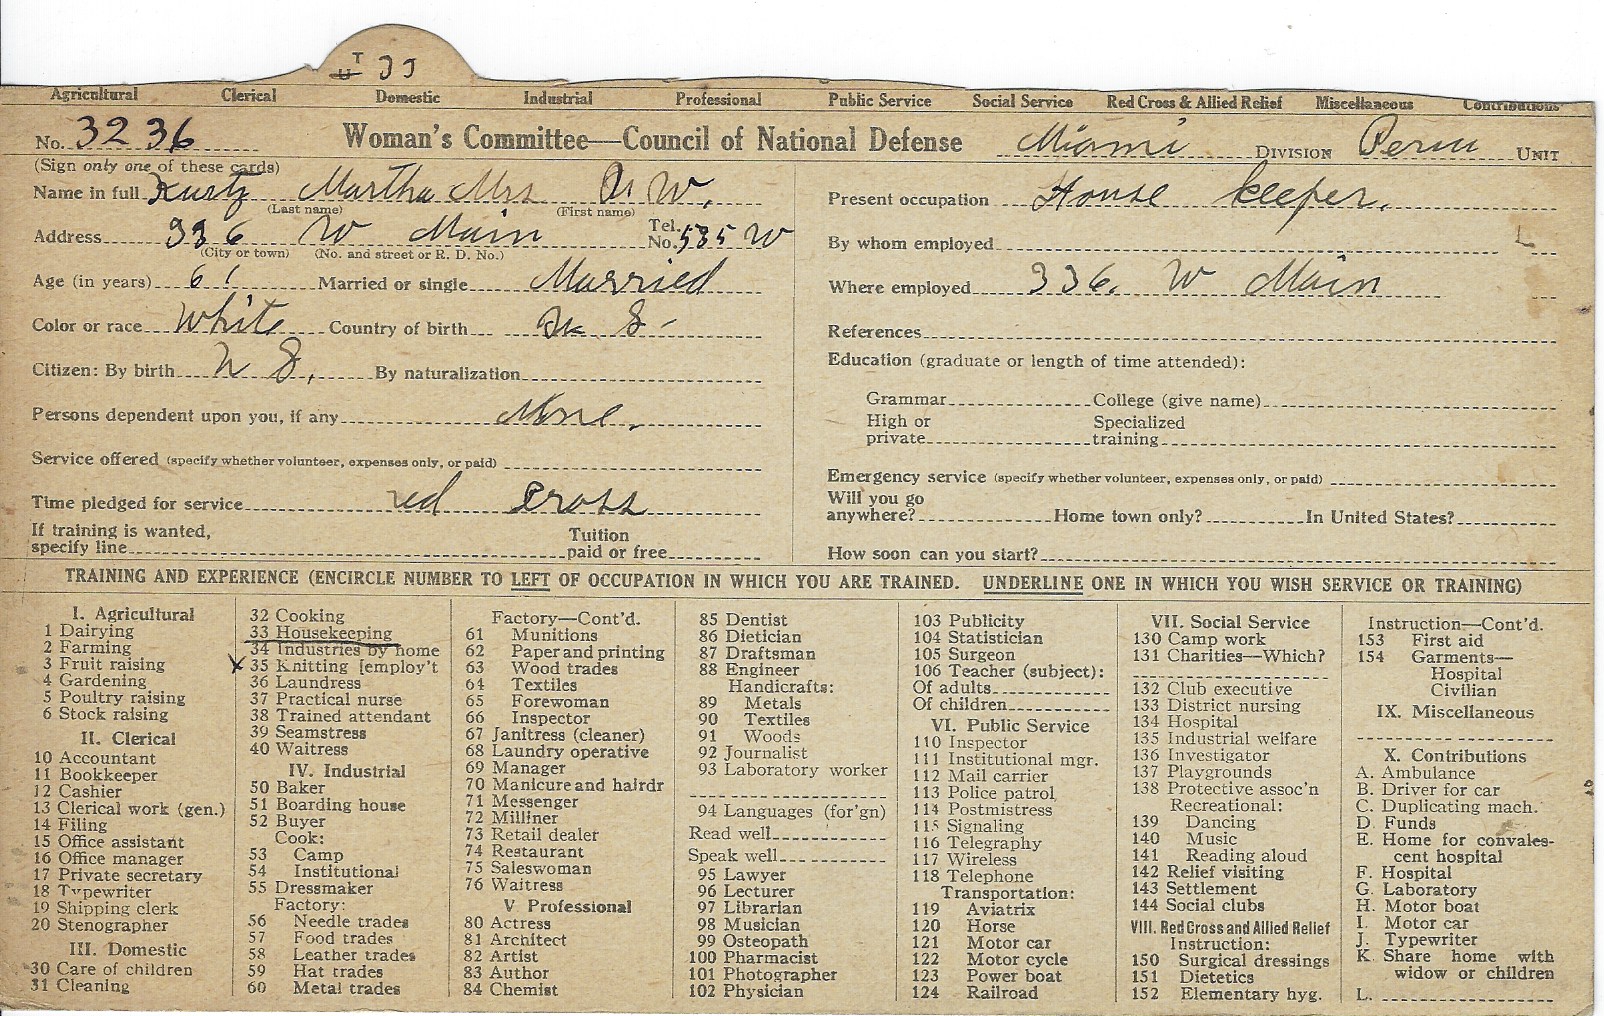 T 33
Agricultural Clerical Domestic Industrial Professional Public Service Social Service Red Cross & Allied Relief Miscellaneous Contributions
No. 3236 Woman's Committee—Council of National Defense Miami DIVISION Peru UNIT
(Sign only one of these cards)
Name in full Kurtz Martha Mrs W.
(Last name) (First name)
Address 336 W Main Tel. No. 535 W
(City or town) (No. and street or R. D. No.)
Age (in years) 61 Married or single Married
Color or race White Country of birth U S
Citizen: By birth U S. By naturalization
Persons dependent upon you, if any None.
Service offered (specify whether volunteer, expenses only, or paid)
Time pledged for service red cross
If training is wanted, specify line Tuition paid or free
Present occupation House keeper.
By whom employed
Where employed 336. W Main
References
Education (graduate or length of time attended):
Grammar College (give name)
High or private Specialized training
Emergency service (specify whether volunteer, expenses only, or paid)
Will you go anywhere? Home town only? In United States?
How soon can you start?
TRAINING AND EXPERIENCE (ENCIRCLE NUMBER TO LEFT OF OCCUPATION IN WHICH YOU ARE TRAINED. UNDERLINE ONE IN WHICH YOU WISH SERVICE OR TRAINING)
I. Agricultural
1 Dairying
2 Farming
3 Fruit raising
4 Gardening
5 Poultry raising
6 Stock raising
II. Clerical
10 Accountant
11 Bookkeeper
12 Cashier
13 Clerical work (gen.)
14 Filing
15 Office assistant
16 Office manager
17 Private secretary
18 Typewriter
19 Shipping clerk
20 Stenographer
III. Domestic
30 Care of children
31 Cleaning
32 Cooking
33 Housekeeping
34 Industries by home
35 Knitting [employ't
36 Laundress
37 Practical nurse
38 Trained attendant
39 Seamstress
40 Waitress
IV. Industrial
50 Baker
51 Boarding house
52 Buyer
Cook:
53 Camp
54 Institutional
55 Dressmaker
Factory:
56 Needle trades
57 Food trades
58 Leather trades
59 Hat trades
60 Metal trades
Factory—Cont'd.
61 Munitions
62 Paper and printing
63 Wood trades
64 Textiles
65 Forewoman
66 Inspector
67 Janitress (cleaner)
68 Laundry operative
69 Manager
70 Manicure and hairdr
71 Messenger
72 Milliner
73 Retail dealer
74 Restaurant
75 Saleswoman
76 Waitress
V Professional
80 Actress
81 Architect
82 Artist
83 Author
84 Chemist
85 Dentist
86 Dietician
87 Draftsman
88 Engineer
Handicrafts:
89 Metals
90 Textiles
91 Woods
92 Journalist
93 Laboratory worker
94 Languages (for'gn)
Read well
Speak well
95 Lawyer
96 Lecturer
97 Librarian
98 Musician
99 Osteopath
100 Pharmacist
101 Photographer
102 Physician
103 Publicity
104 Statistician
105 Surgeon
106 Teacher (subject):
Of adults
Of children
VI. Public Service
110 Inspector
111 Institutional mgr.
112 Mail carrier
113 Police patrol
114 Postmistress
115 Signaling
116 Telegraphy
117 Wireless
118 Telephone
Transportation:
119 Aviatrix
120 Horse
121 Motor car
122 Motor cycle
123 Power boat
124 Railroad
VII. Social Service
130 Camp work
131 Charities—Which?
132 Club executive
133 District nursing
134 Hospital
135 Industrial welfare
136 Investigator
137 Playgrounds
138 Protective assoc'n
Recreational:
139 Dancing
140 Music
141 Reading aloud
142 Relief visiting
143 Settlement
144 Social clubs
VIII. Red Cross and Allied Relief
Instruction:
150 Surgical dressings
151 Dietetics
152 Elementary hyg.
Instruction—Cont'd.
153 First aid
154 Garments—
Hospital
Civilian
IX. Miscellaneous
X. Contributions
A. Ambulance
B. Driver for car
C. Duplicating mach.
D. Funds
E. Home for convales-
cent hospital
F. Hospital
G. Laboratory
H. Motor boat
I. Motor car
J. Typewriter
K. Share home with
widow or children
L.